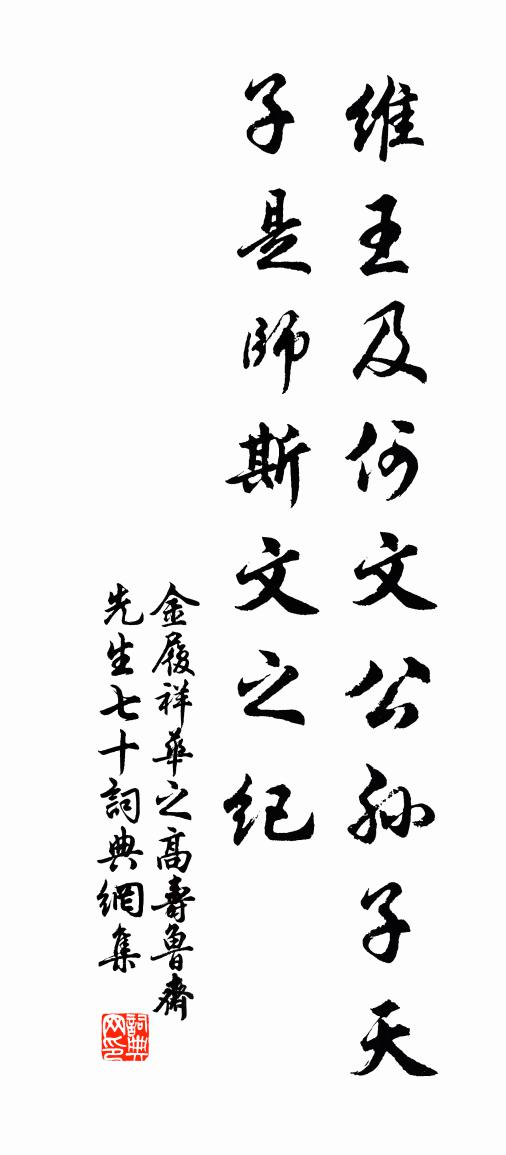 維王及何文公孫子天
子是師斯文之紀
金履祥華之高壽魯齋
先生七十詞典網集
詞典網印